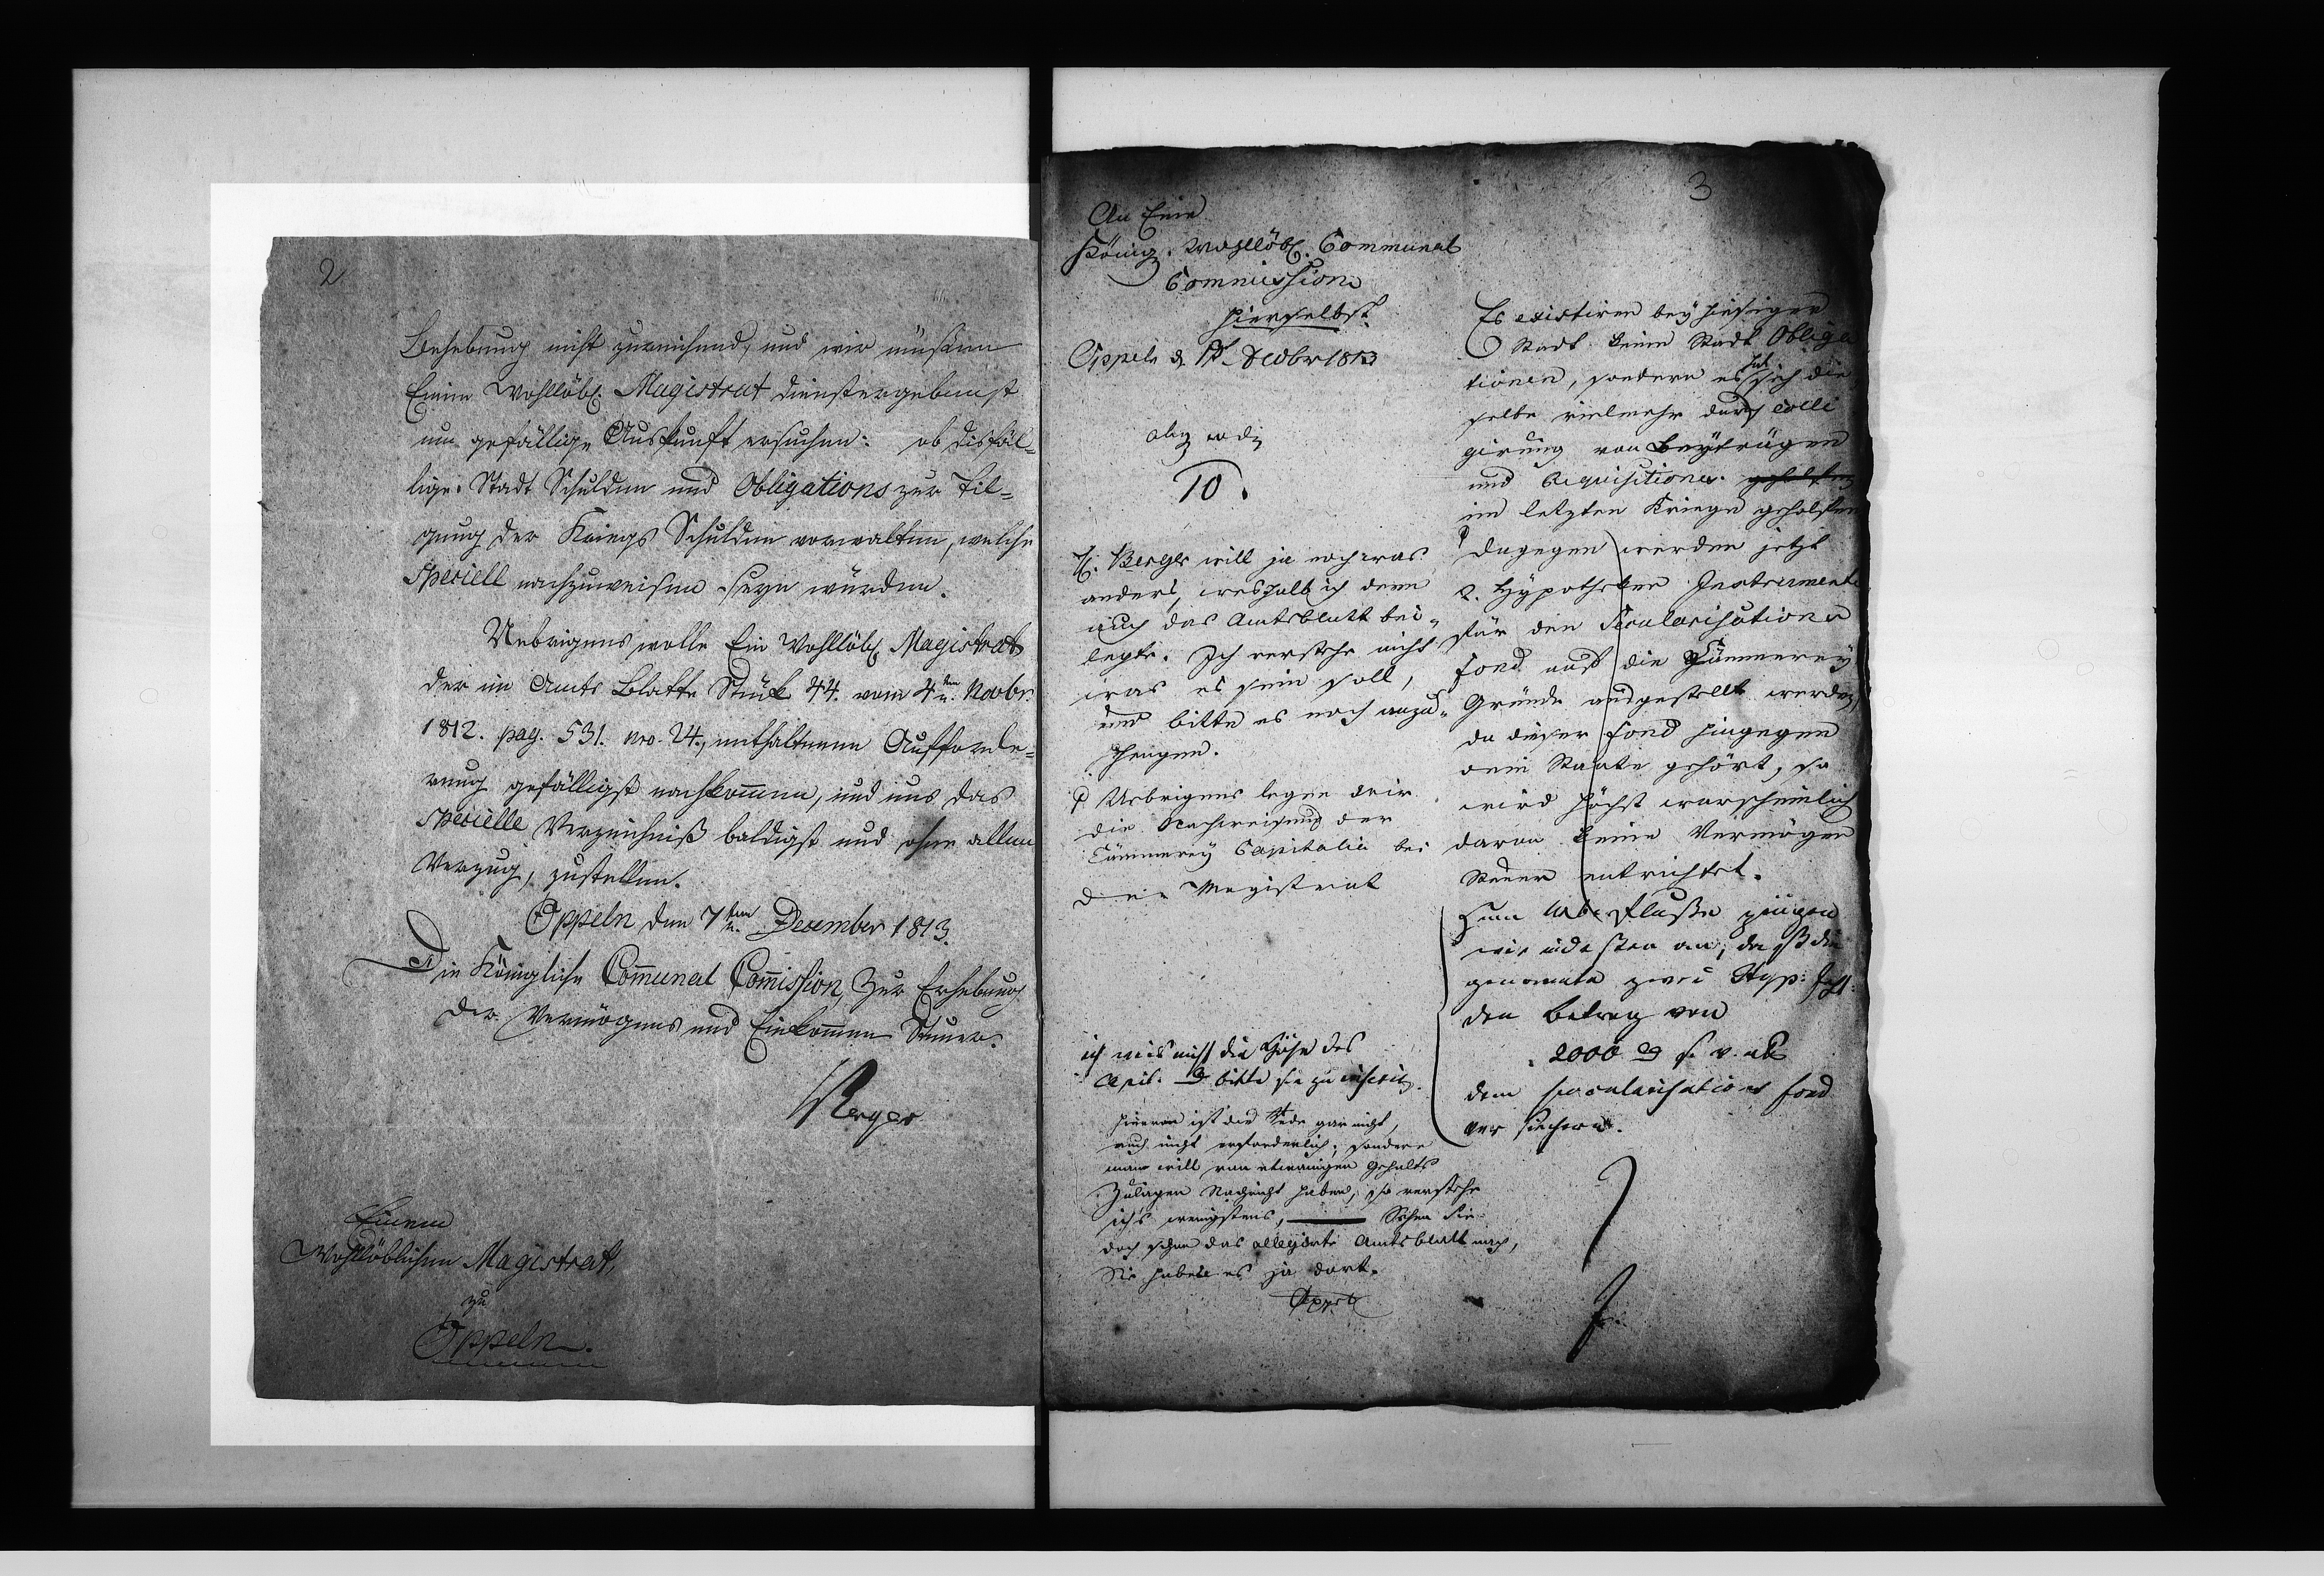 2
Behebung nicht zureichend, und wir müßen
Einen Wohllöbl. Magistrat dienstergebenst
um gefällige Auskunft ersuchen: ob disfäl=
lige Stadt Schulden und Obligations zur Til=
gung der Kriegs Schulden vorwalten, welche
speciell nachzuweisen seyn würden.
Uebrigens wolle Ein Wohllöbl. Magistrat
der im Amts Blatte Stück 44. vom 4ten Novbr.
1812. pag. 531. nro. 24., enthaltenen Aufforde=
rung gefälligst nachkommen, und uns das
specielle Verzeichniß baldigst und ohne allen
Verzug, zustellen.
Oppeln den 7ten December 1813.
Die Königliche Communal Commission, zur Erhebung
der Vermögens und Einkommen Steuer.
Berger
Einem
Wohllöblichen Magistrat,
zu
Oppeln.
3
An Eine
Königl. Wohllöbl. Communal
Commission
hierselbst
Oppeln d. Decbr 1813
10.
H. Berger will ja noch was
anders, weshalb ich denn
auch das Amtsblatt bei„
legte. Ich verstehe nicht
was es sein soll,
und bitte es noch anzu„
zeigen.
Uebrigens legen wir
die Nachweisung der
Cämmerey Capitalia bei
Der Magistrat
ich weis nicht die Höhe des
Capit. bitte sie zu
hievon ist die Rede gar nicht,
auch nicht erforderlich, sondern
man will von etwanigen Gehalts
Zulagen Nachricht haben, so verstehe
ich's wenigstens, Sehen Sie
doch schon das allegirte Amtsblatt nach,
Sie haben es ja dort.
Es existiren bey hiesiger
Stadt keine Stadt Obliga
tionen, sondern es hat sich die
selbe vielmehr durch colli
girung von Beyträgen
und Requisitionen
im letzten Kriege geholfen
Dagegen werden jetzt
2. Hypotheken Instrumente
für den Secularisations
fond auf die Cämmerey
Gründe ausgestellt werden,
da dieser Fond hingegen
dem Staate gehört, so
wird höchst warscheinlich
davon keine Vermögen
Steuer entrichtet.
Zum Ueberfluße zeigen
wir indessen an, daß die
genannten zwei Hyp:
den Betrag von
2000
dem Secularisations fond
versichern.